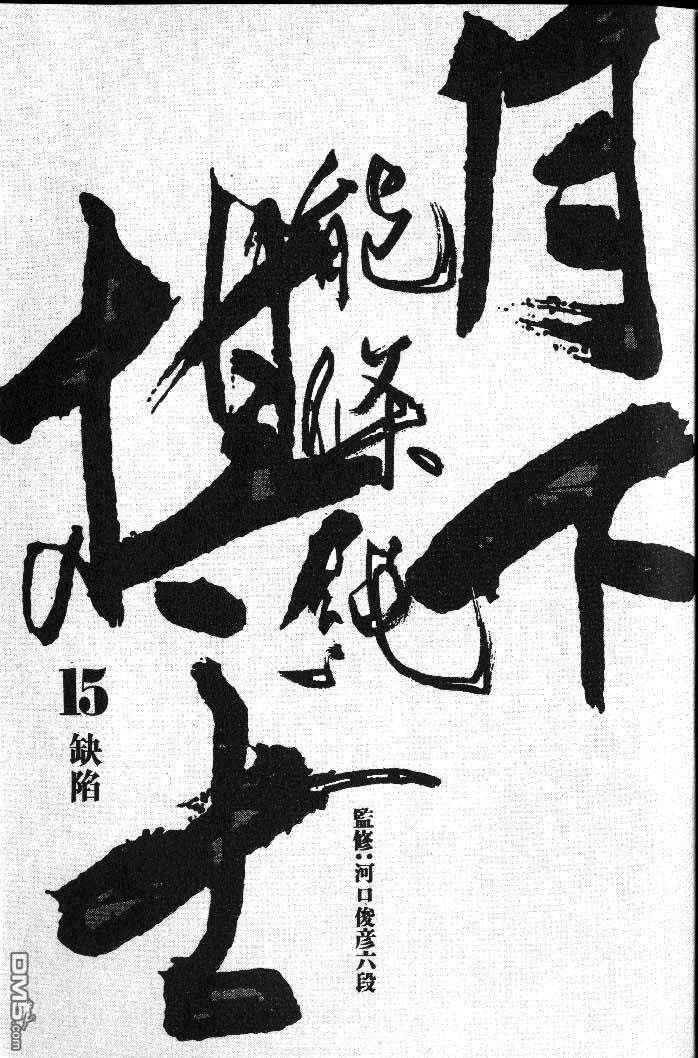 月下の棋士
能條純一
監修：河口俊彦六段
15
缺陷
DM5.com